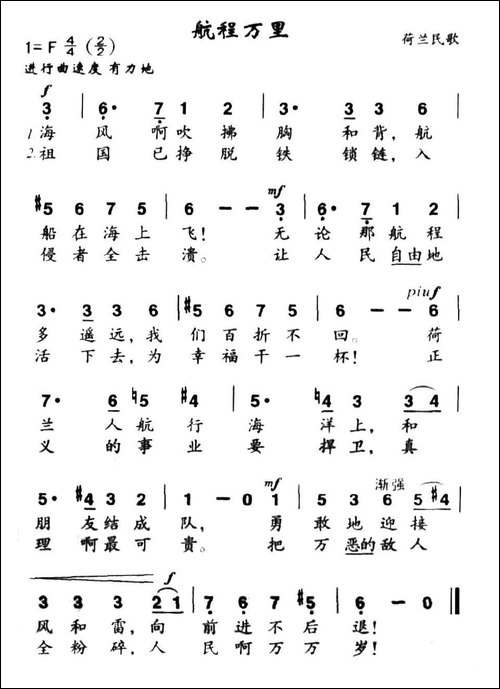 航程万里
1=F 4/4 (2/2) 荷兰民歌
进行曲速度 有力地
f
3 | 6· 7 1 2 | 3· 3 3 6 |
1.海 风 啊吹 拂 胸 和背，航
2.祖 国 已挣 脱 铁 锁链，入
mf
#5 6 7 5 | 6 - - 3 | 6· 7 1 2 |
船 在 海 上 飞！ 无 论 那 航 程
侵 者 全 击 溃。 让 人 民 自由 地
piuf
3· 3 3 6 | #5 6 7 5 | 6 - - 6 |
多 遥 远，我 们 百 折 不 回。 荷
活 下 去，为 幸 福 干 一 杯！ 正
7· 6 ♮5 #4 | 5· ♮4 3 3 4 |
兰 人 航 行 海 洋 上，和
义 的 事 业 要 捍 卫，真
mf 渐强
5· #4 3 2 | 1 - 0 1 | 5 3 6 5 #4 |
朋 友 结 成 队， 勇 敢 地 迎 接
理 啊 最 可 贵。 把 万 恶的 敌 人
f
3 3 3 2 1 | 7 6 7 #5 | 6 - 0 ‖
风 和 雷，向 前 进 不 后 退！
全 粉 碎，人 民 啊 万 万 岁！